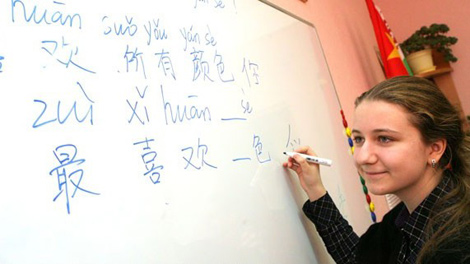 huān suǒ yǒu yán sè
欢 所有颜色 但
zuì xǐ huān _sè
最 喜 欢 _色